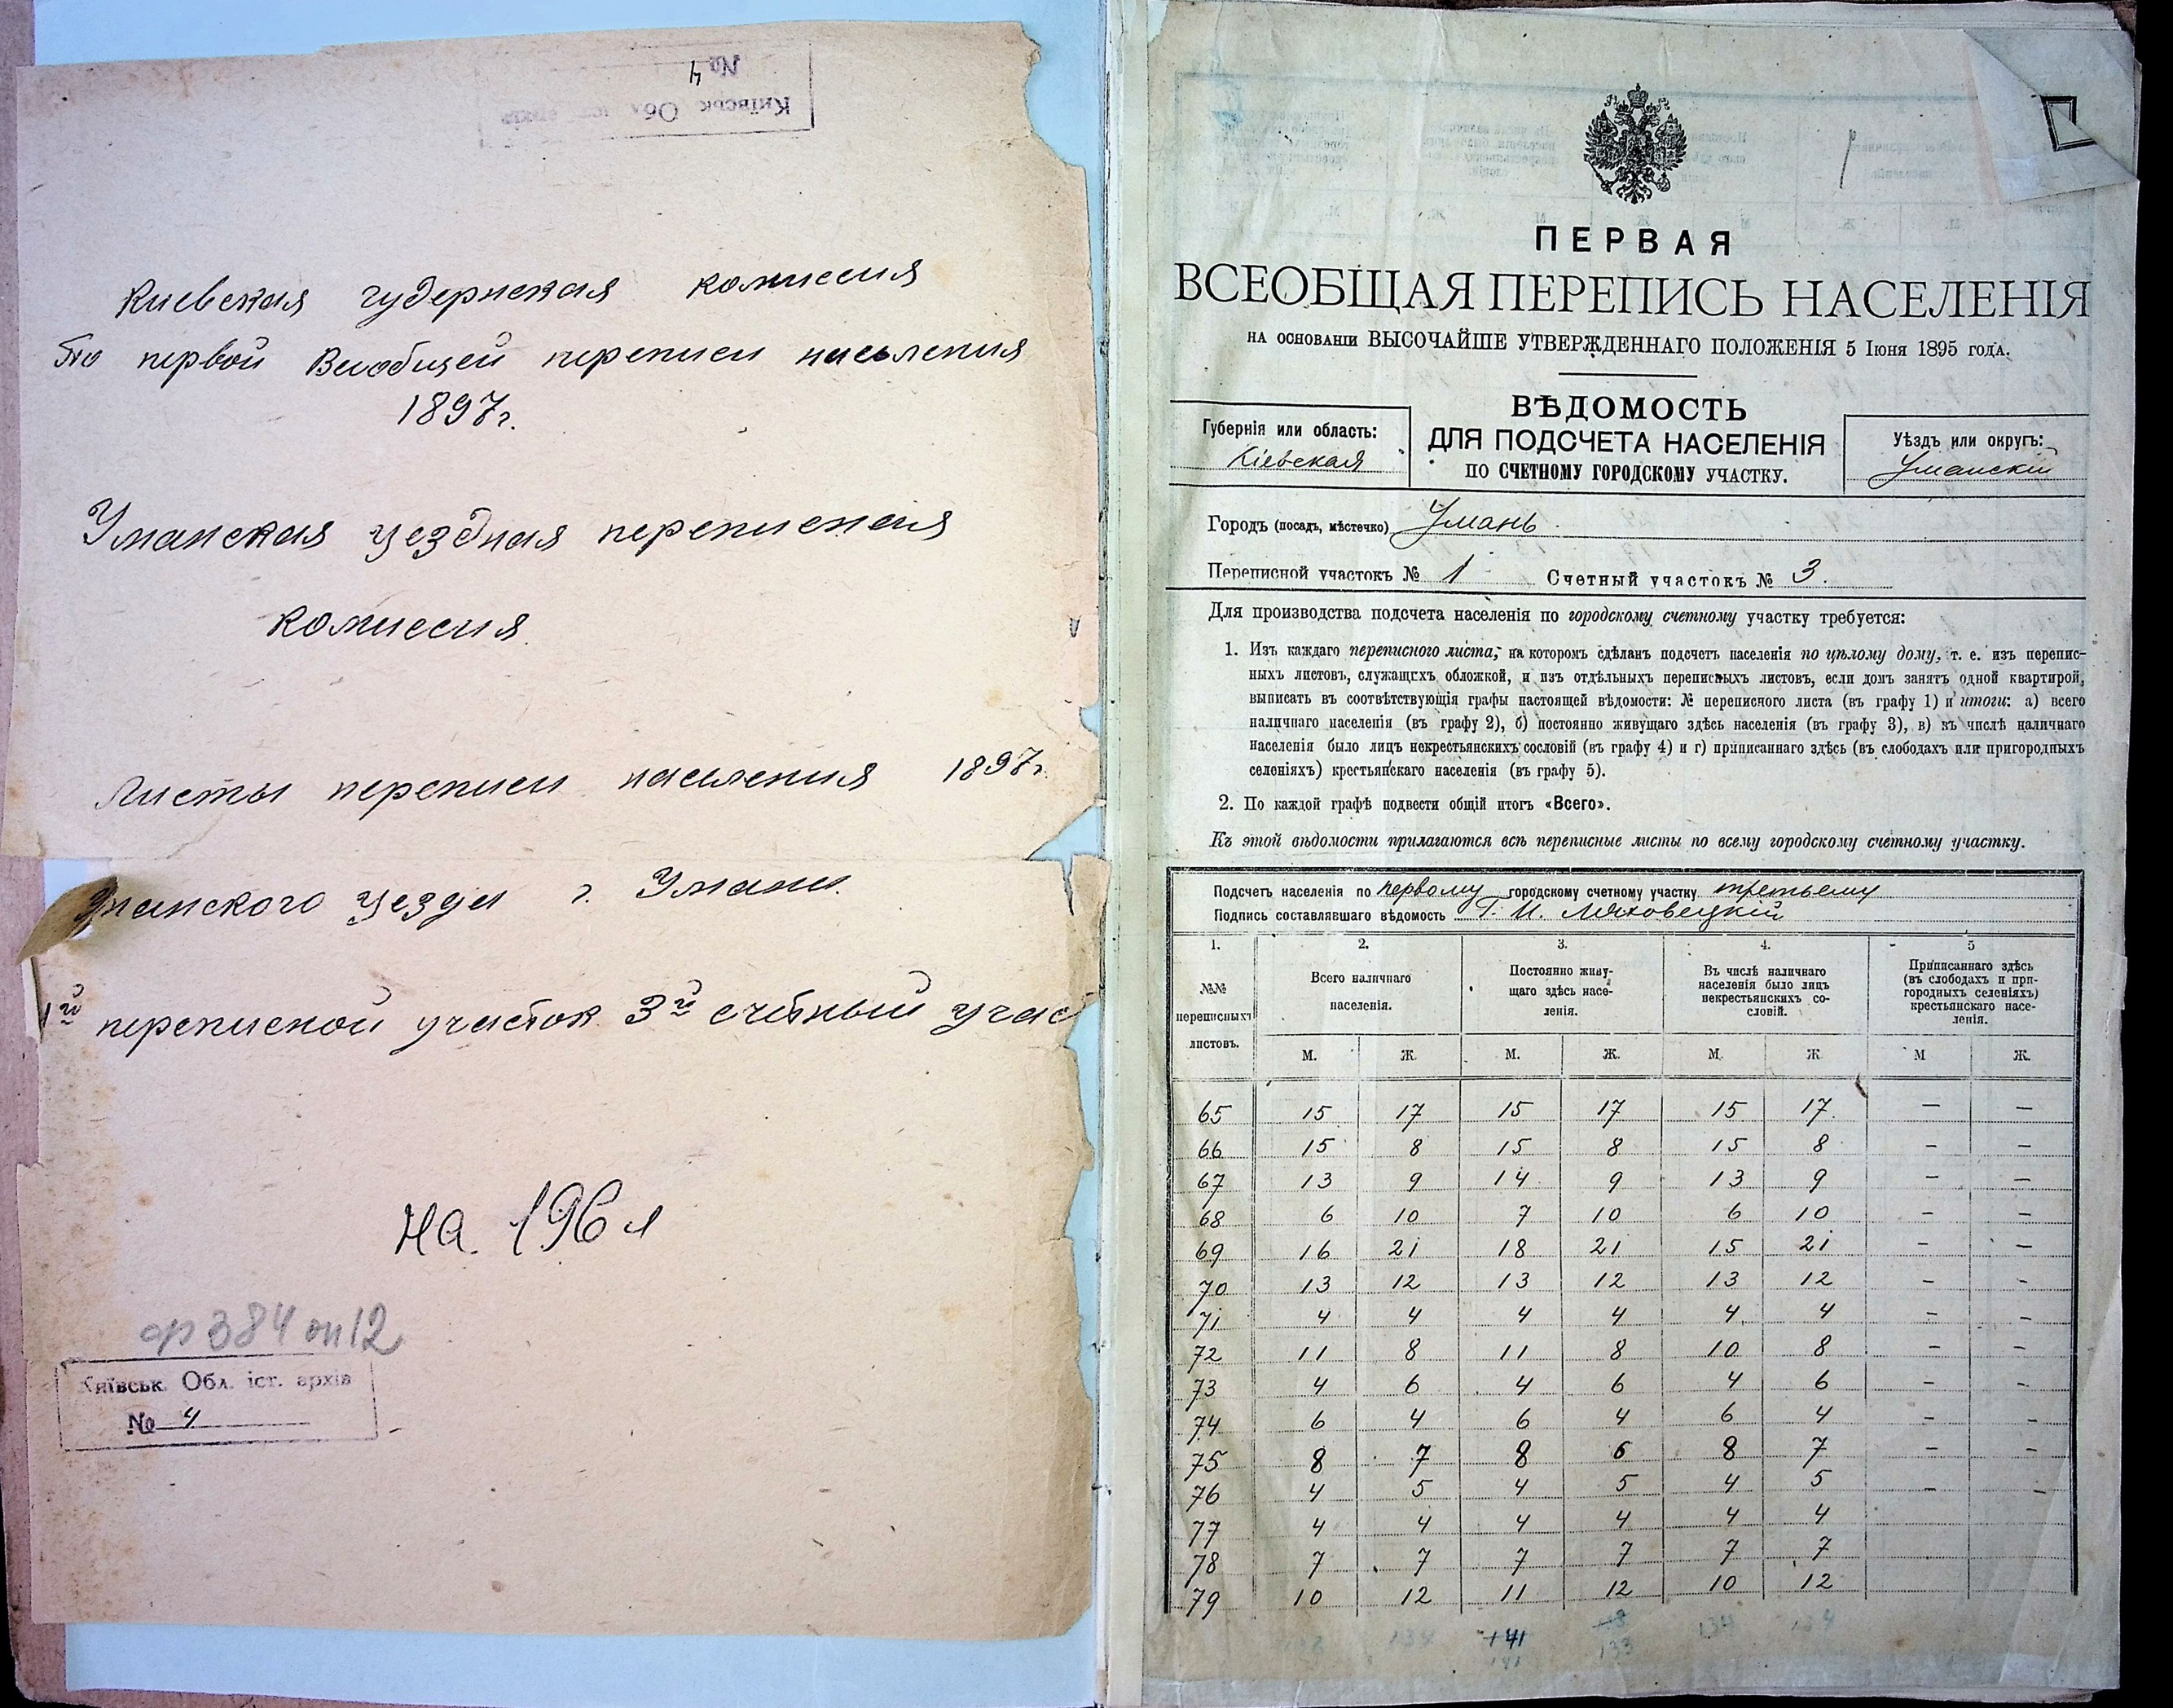 № 4
Київськ Обл іст архів
Киевская губернская комиссия
По первой Всеобщей переписи населения
1897г.
Уманская уездная переписная
комиссия.
Листы переписи населения 1897г.
Уманского уезда г. Умани.
1й переписной участок 3й счётный учас
На 196 л
ф384 оп12
Київськ. Обл. іст. архів
№ 4
ПЕРВАЯ
ВСЕОБЩАЯ ПЕРЕПИСЬ НАСЕЛЕНІЯ
НА ОСНОВАНІИ ВЫСОЧАЙШЕ УТВЕРЖДЕННАГО ПОЛОЖЕНІЯ 5 ІЮНЯ 1895 ГОДА.
ВѢДОМОСТЬ
ДЛЯ ПОДСЧЕТА НАСЕЛЕНІЯ
ПО СЧЕТНОМУ ГОРОДСКОМУ УЧАСТКУ.
Губернія или область:
Кіевская
Уѣздъ или округъ:
Уманскій
Городъ (посадъ, мѣстечко) Умань.
Переписной участокъ № 1 Счетный участокъ № 3.
Для производства подсчета населенія по городскому счетному участку требуется:
1. Изъ каждаго переписного листа, на которомъ сдѣланъ подсчетъ населенія по цѣлому дому, т. е. изъ перепис-
ныхъ листовъ, служащихъ обложкой, и изъ отдѣльныхъ переписныхъ листовъ, если домъ занятъ одной квартирой,
выписать въ соотвѣтствующія графы настоящей вѣдомости: № переписного листа (въ графу 1) и итоги: а) всего
наличнаго населенія (въ графу 2), б) постоянно живущаго здѣсь населенія (въ графу 3), в) къ числѣ наличнаго
населенія было лицъ некрестьянскихъ сословій (въ графу 4) и г) приписаннаго здѣсь (въ слободахъ или пригородныхъ
селеніяхъ) крестьянскаго населенія (въ графу 5).
2. По каждой графѣ подвести общій итогъ «Всего».
Къ этой вѣдомости прилагаются всѣ переписные листы по всему городскому счетному участку.
Подсчетъ населенія по первому городскому счетному участку третьему
Подпись составлявшаго вѣдомость Г. И. Ляховецкій
1. 2. 3. 4. 5
№№ переписныхъ листовъ.
Всего наличнаго населенія.
Постоянно живу-
щаго здѣсь насе-
ленія.
Въ числѣ наличнаго
населенія было лицъ
некрестьянскихъ со-
словій.
Приписаннаго здѣсь
(въ слободахъ и при-
городныхъ селеніяхъ)
крестьянскаго насе-
ленія.
М. Ж. М. Ж. М. Ж. М Ж.
65 15 17 15 17 15 17 — —
66 15 8 15 8 15 8 — —
67 13 9 14 9 13 9 — —
68 6 10 7 10 6 10 — —
69 16 21 18 21 15 21 — —
70 13 12 13 12 13 12 — —
71 4 4 4 4 4 4 — —
72 11 8 11 8 10 8 — —
73 4 6 4 6 4 6 — —
74 6 4 6 4 6 4 — —
75 8 7 8 6 8 7 — —
76 4 5 4 5 4 5 — —
77 4 4 4 4 4 4
78 7 7 7 7 7 7
79 10 12 11 12 10 12
134 141 134 134
141 133